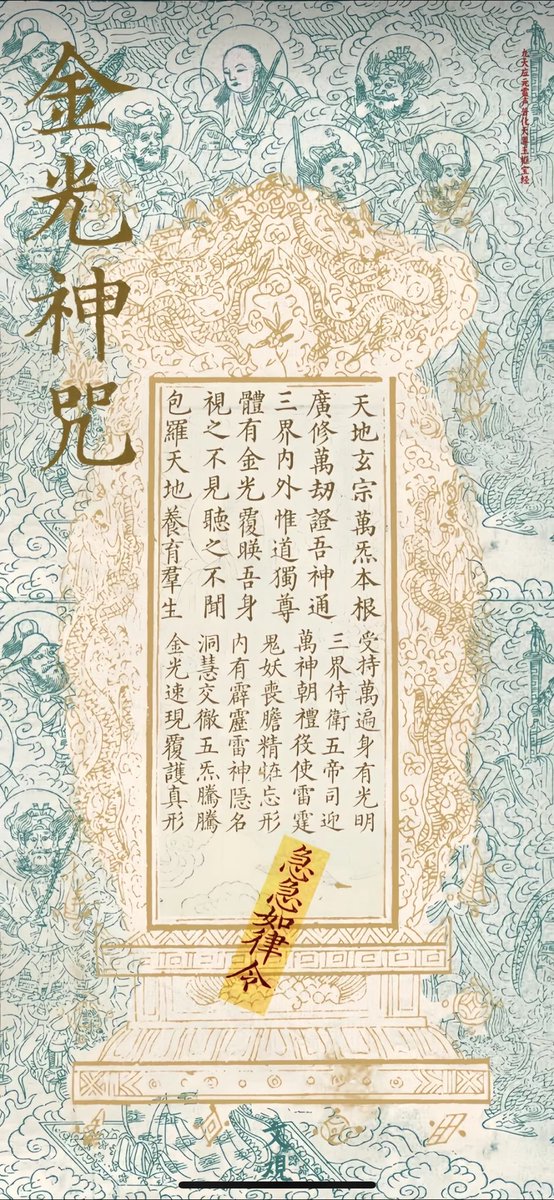 金光神咒
九天应元雷声普化天尊玉枢宝经
天地玄宗萬炁本根
廣修萬劫證吾神通
三界內外惟道獨尊
體有金光覆暎吾身
視之不見聽之不聞
包羅天地養育羣生
受持萬遍身有光明
三界侍衛五帝司迎
萬神朝禮役使雷霆
鬼妖喪膽精怪忘形
內有霹靂雷神隱名
洞慧交徹五炁騰騰
金光速現覆護真形
急急如律令